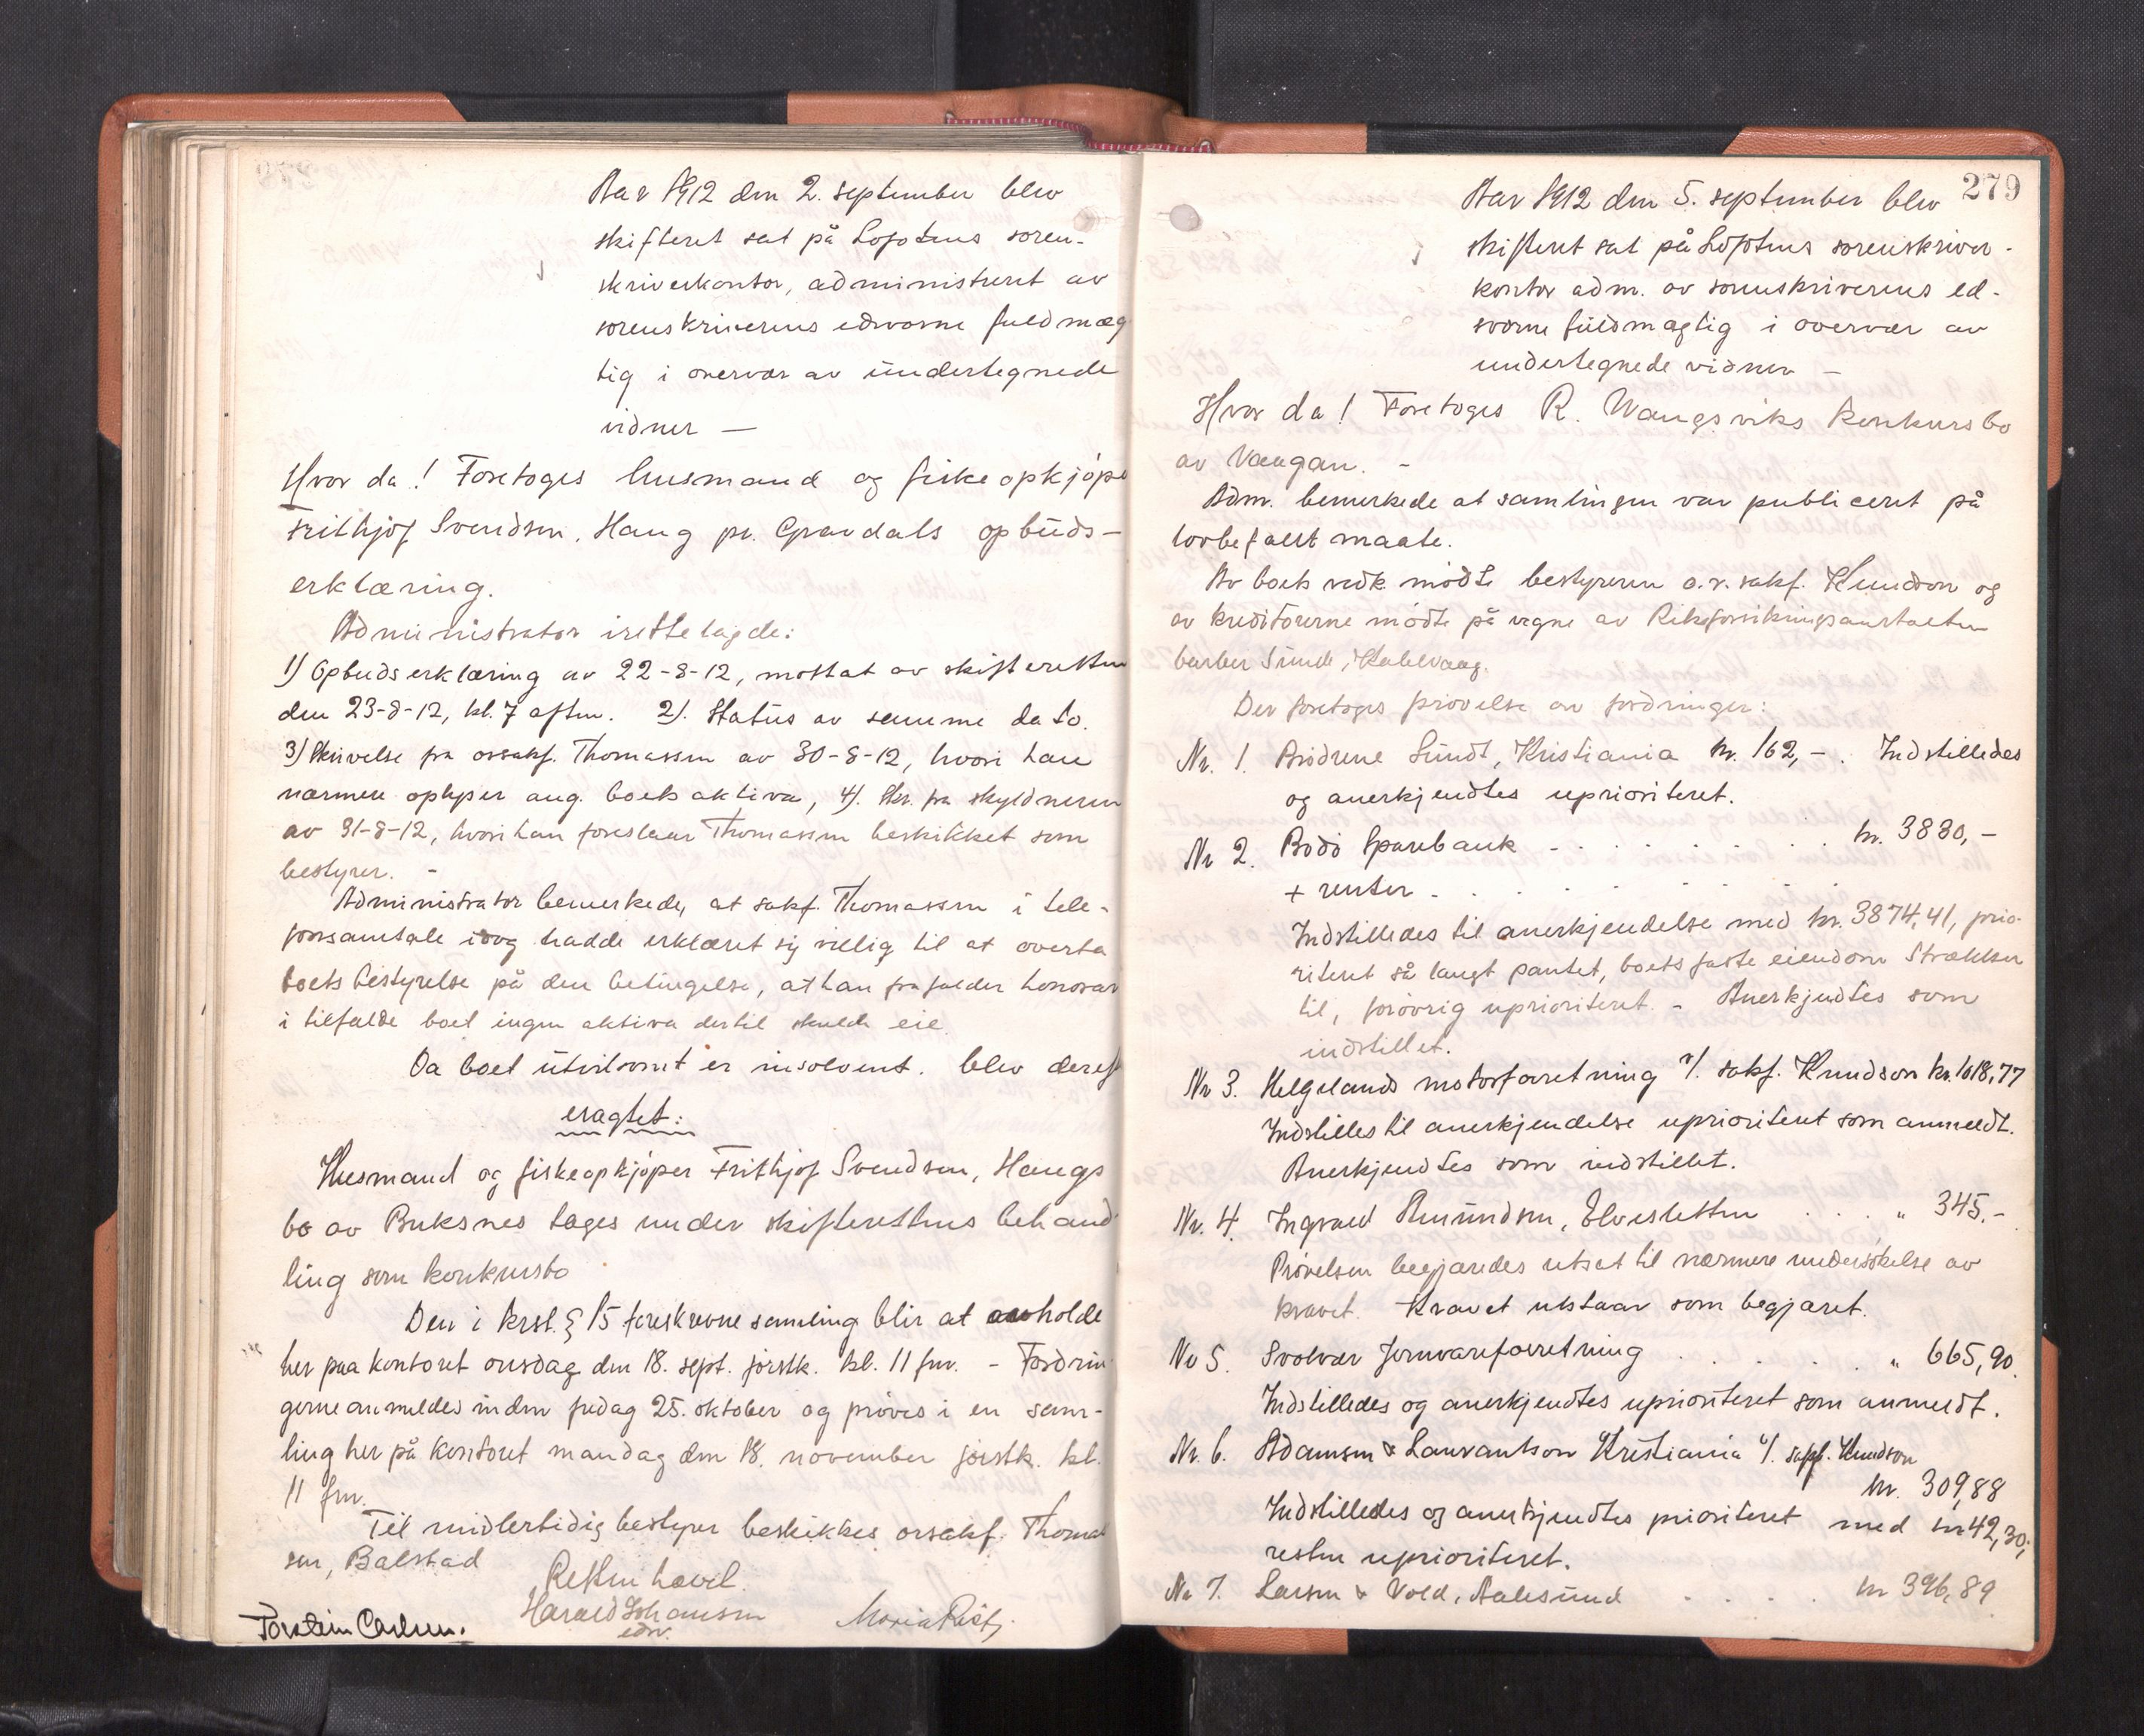 Aar 1912 den 2. september blev
skifteret sat på Lofotens soren-
skriverkontor, administreret av
sorenskriverens edsvorne fuldmæg
tig i overvær av undertegnede
vidner —
Hvor da! Foretoges husmand og fiskeopkjøpe
Frithjof Svendsen, Haug pr. Gravdals opbuds-
erklæring.
Administrator irettelagde:
1) Opbudserklæring av 22-8-12, mottat av skifteretten
den 23-8-12, kl. 7 aften. 2). Status av samme dato.
3) Skrivelse fra orsakf. Thomassen av 30-8-12, hvori han
nærmere oplyser ang. boets aktiva, 4). Skr. fra skyldneren
av 31-8-12, hvori han foreslaar Thomassen beskikket som
bestyrer. -
Administrator bemerkede, at sakf. Thomassen i tele-
fonsamtale idag hadde erklæret sig villig til at overta
boets bestyrelse på den betingelse, at han frafalder honorar
i tilfælde boet ingen aktiva dertil skulde eie.
Da boet utvilsomt er insolvent. blev deref
eragtet:
Husmand og fiskeopkjøper Frithjof Svendsen, Haugs
bo av Buksnes tages under skifterettens behand
ling som konkursbo
Den i krsl. § 15 foreskrevne samling blir at avholde
her paa kontoret onsdag den 18. sept. førstk. kl. 11 fm. - Fordrin
gerne anmeldes inden fredag 25. oktober og prøves i en sam-
ling her på kontoret mandag den 18. november førstk. kl.
11 fm.
Til midlertidig bestyrer beskikkes orsakf. Thomas
sen, Balstad
Retten hævet.
Harald Johansen
edsv.
Torstein Carlsen.
Maria Rist
279
Aar 1912 den 5. september blev
skifteret sat på Lofotens sorenskriver-
kontor adm. av sorenskriverens ed-
svorne fuldmægtig i overvær av
undertegnede vidner —
Hvor da! Foretoges R. Wangsviks konkursbo
av Vaagan. -
Adm. bemerkede at samlingen var publiceret på
lovbefalt maate.
Av boets vedk. mødte bestyreren o.r.sakf. Knudson og
av kreditorerne mødte på vegne av Riksforsikringsanstalten
barber Sunde, Kabelvaag.
Der foretoges prøvelse av fordringer:
Nr. 1. Brødrene Sundt, Kristiania kr. 162,-. Indstilledes
og anerkjendtes uprioriteret.
Nr 2. Bodø Sparebank - . . . . . . . kr. 3830,-
+ renter - . . . . . . .
Indstilledes til anerkjendelse med kr. 3874,41, prio-
riteret så langt pantet, boets faste eiendom strækker
til, forøvrig uprioriteret. - Anerkjendtes som
indstillet.
Nr 3. Helgelands motorforretning v/. sakf. Knudson kr. 1018,77
Indstilles til anerkjendelse uprioriteret som anmeldt.
Anerkjendtes som indstillet.
Nr. 4. Ingvald Amundsen, Elvesletten . . . " 345.-
Prøvelsen begjæredes utsat til nærmere undersøkelse av
kravet. Kravet utstaar som begjæret.
Nr 5. Svolvær Jernvareforretning . . . . . " 665,90.
Indstilledes og anerkjendtes uprioriteret som anmeldt.
Nr. 6. Adamsen & Lauvantson Kristiania v/. sakf. Knudson
kr. 309,88
Indstilledes og anerkjendtes prioriteret med kr 42,30;
resten uprioriteret.
Nr 7. Larsen & Vold, Aalesund . . . . kr 396,89